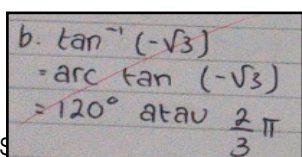 b. tan⁻¹ (-√3)
= arc tan (-√3)
= 120° atau 2/3 π
S